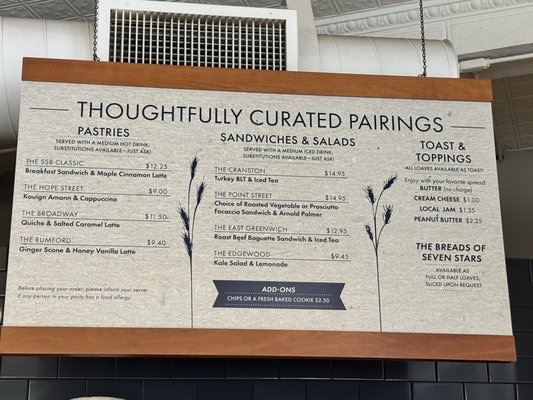 THOUGHTFULLY CURATED PAIRINGS
PASTRIES
SERVED WITH A MEDIUM HOT DRINK:
SUBSTITUTIONS AVAILABLE—JUST ASK!
THE SSB CLASSIC $12.25
Breakfast Sandwich & Maple Cinnamon Latte
THE HOPE STREET $9.00
Kouign Amann & Cappuccino
THE BROADWAY $11.50
Quiche & Salted Caramel Latte
THE RUMFORD $9.40
Ginger Scone & Honey Vanilla Latte
Before placing your order, please inform your server
if any person in your party has a food allergy
SANDWICHES & SALADS
SERVED WITH A MEDIUM ICED DRINK:
SUBSTITUTIONS AVAILABLE—JUST ASK!
THE CRANSTON $14.95
Turkey BLT & Iced Tea
THE POINT STREET $14.95
Choice of Roasted Vegetable or Prosciutto
Focaccia Sandwich & Arnold Palmer
THE EAST GREENWICH $12.95
Roast Beef Baguette Sandwich & Iced Tea
THE EDGEWOOD $9.45
Kale Salad & Lemonade
ADD-ONS
CHIPS OR A FRESH BAKED COOKIE $2.50
TOAST &
TOPPINGS
ALL LOAVES AVAILABLE AS TOAST!
Enjoy with your favorite spread:
BUTTER (no charge)
CREAM CHEESE $1.00
LOCAL JAM $1.35
PEANUT BUTTER $2.25
THE BREADS OF
SEVEN STARS
AVAILABLE AS
FULL OR HALF LOAVES,
SLICED UPON REQUEST